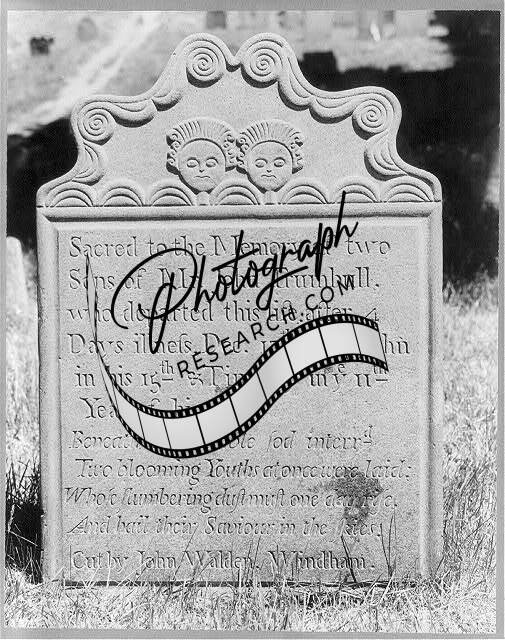 Sacred to the Memory of two
Sons of Mr. Trumbull,
who departed this life after 4
Days illneſs, Dec. John
in his 15th & Tim in ye 11th
Year of his
Beneath ſod interrd
Two blooming Youths at once were laid:
Whoſe ſlumbering duſt muſt one day riſe,
And hail their Saviour in the ſkies;
Cut by John Walden, Windham.
Photograph
RESEARCH.COM